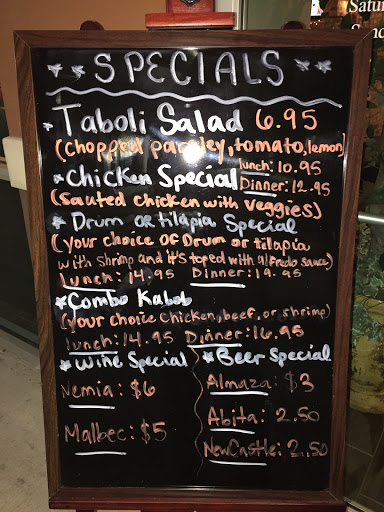 Satu
Sund
SPECIALS
Taboli Salad 6.95
(chopped parsley, tomato, lemon)
Chicken Special lunch: 10.95
Dinner: 12.95
(Sauted chicken with veggies)
Drum or tilapia Special
(your choice of Drum or tilapia
with shrimp and it's toped with alfredo sauce)
Lunch: 14.95 Dinner: 19.95
Combo Kabob
(your choice Chicken, beef, or shrimp)
lunch: 14.95 Dinner: 16.95
Wine Special
Beer Special
Nemia: $6
Almaza: $3
Malbec: $5
Abita: 2.50
NewCastle: 2.50